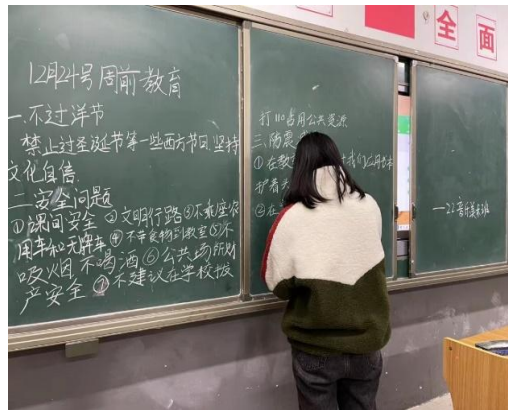 全面
12月24号周前教育
一.不过洋节
禁止过圣诞节等一些西方节日.坚持
文化自信.
二.安全问题
①课间安全 ②文明行路③不乘座农
用车和无牌车④不带食物到教室⑤不
吸烟 不喝酒⑥公共场所财
产安全⑦不建议在学校拨
打110占用公共资源
三.防震
①在教
护着头
②在
——22音乐美术班